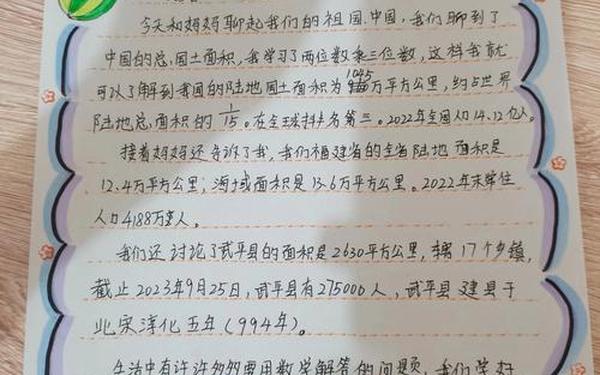 今天和妈妈聊起我们的祖国.中国，我们聊到了
中国的总国土面积，我学习了两位数乘三位数，这样我就
可以了解到我国的陆地国土面积为1045万平方公里，约占世界
陆地总面积的1/15。在全球排名第三。2022年全国人口14.12亿人。
接着妈妈还告诉了我，我们福建省的全省陆地面积是
12.4万平方公里；海域面积是13.6万平方公里。2022年末常住
人口4188万人。
我们还讨论了武平县的面积是2630平方公里，辖17个乡镇，
截止2023年9月25日，武平县有275000人，武平县建县于
北宋淳化五年(994年)。
生活中有许许多多要用数学解答的问题，我们学好